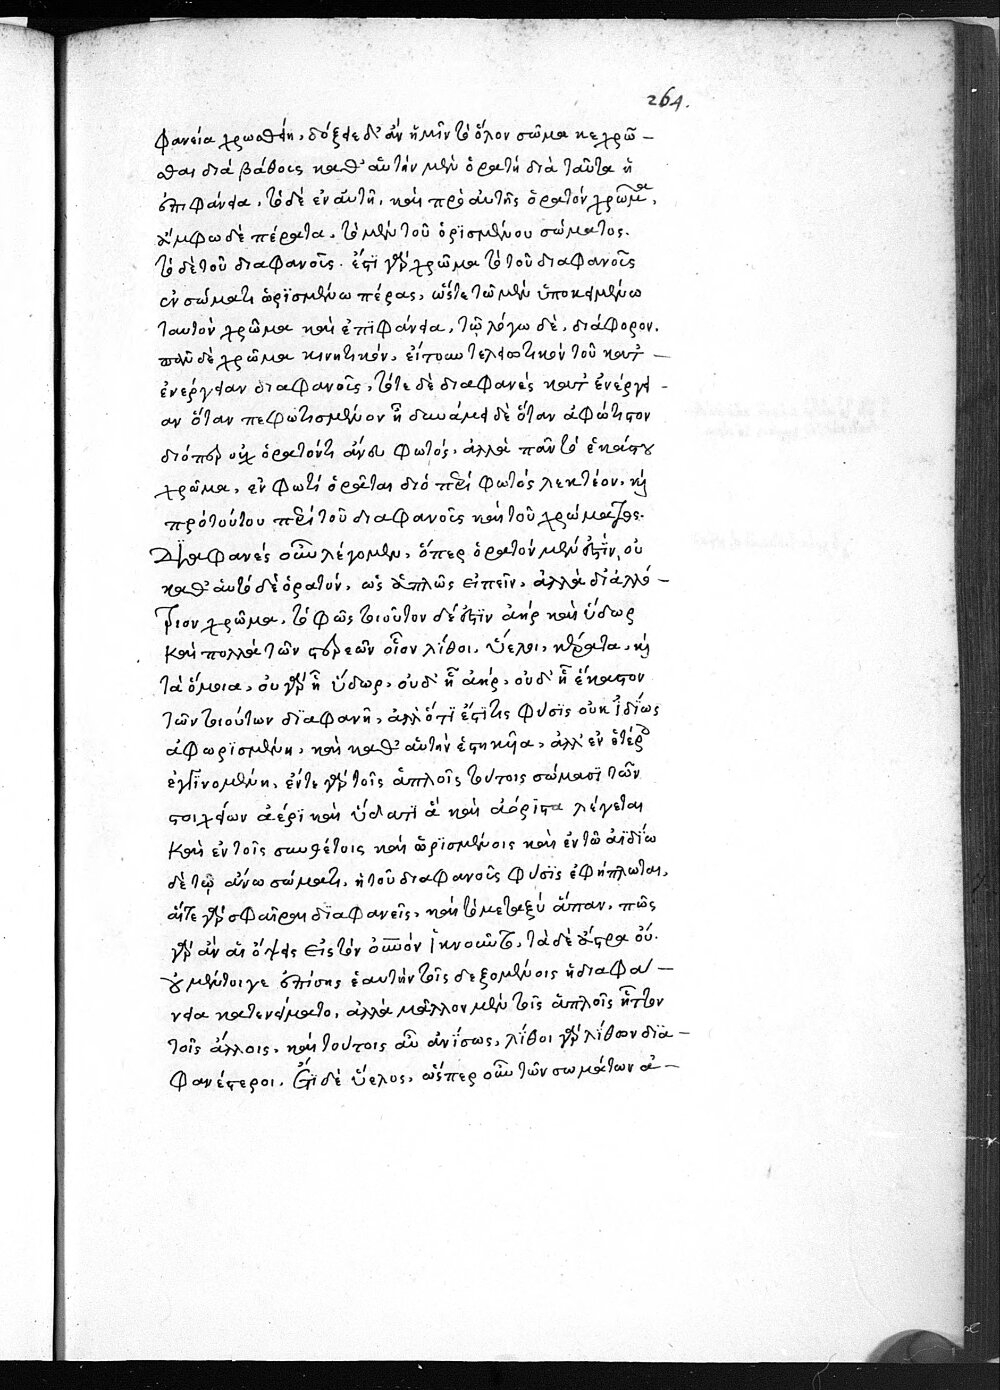 264.
φανεία χρωσθῇ, δόξειε δ' ἂν ἡμῖν τὸ ὅλον σῶμα κεχρῶ-
σθαι διὰ βάθους καθ' αὑτὴν μὲν ὁρατὴ διὰ ταῦτα ἡ
ἐπιφάνεια, τὸ δὲ ἐν αὐτῇ, καὶ πρὸ αὐτῆς ὁρατὸν χρῶμα,
ἄμφω δὲ πέρατα, τὸ μὲν τοῦ ὁρισμένου σώματος.
τὸ δὲ τοῦ διαφανοῦς. ἔστι γὰρ χρῶμα τὸ τοῦ διαφανοῦς
ἐν σώματι ὡρισμένω πέρας, ὥστε τῶ μὲν ὑποκειμένω
ταυτὸν χρῶμα καὶ ἐπιφάνεια, τῷ λόγω δὲ, διάφορον.
πᾶν δὲ χρῶμα κινητικὸν, εἴτουν τελεστικὸν τοῦ κατ' -
ἐνέργειαν διαφανοῦς, τότε δὲ διαφανὲς κατ' ἐνέργει -
αν ὅταν πεφωτισμένον ἦ δυνάμει δὲ ὅταν ἀφώτιστον
διόπερ οὐχ ὁρατόν τι ἄνευ φωτός, ἀλλὰ πᾶν τὸ ἑκάστου
χρῶμα, ἐν φωτὶ ὁρᾶται διὸ περὶ φωτὸς λεκτέον, καὶ
πρὸ τούτου περὶ τοῦ διαφανοῦς καὶ τοῦ χρώματος.
Διαφανὲς οὖν λέγομεν, ὅπερ ὁρατὸν μέν ἐστιν, οὐ
καθ' αὑτὸ δὲ ὁρατὸν, ὡς ἁπλῶς εἰπεῖν, ἀλλὰ δι' ἀλλό -
τριον χρῶμα, τὸ φῶς τοιοῦτον δέ ἐστιν ἀὴρ καὶ ὕδωρ
καὶ πολλὰ τῶν στερεῶν οἷον λίθοι, ὕελοι, κέρατα, καὶ
τὰ ὅμοια, οὐ γὰρ ἧ ὕδωρ, οὐδ' ἧ ἀὴρ, οὐδ' ἧ ἕκαστον
τῶν τοιούτων διαφανῆ, ἀλλ' ὅτι ἔστι τις φύσις οὐκ ἰδίως
ἀφωρισμένη, καὶ καθ' αὑτὴν ἑστηκυῖα, ἀλλ' ἐν ἑτέρω
ἐγγινομένη, ἔν τε γὰρ τοῖς ἁπλοῖς τούτοις σώμασι τῶν
στοιχείων ἀέρι καὶ ὕδατι ἃ καὶ ἀόριστα λέγεται
καὶ ἐν τοῖς συνθέτοις καὶ ὡρισμένοις καὶ ἐν τῶ ἀϊδίω
δὲ τῷ ἄνω σώματι, ἡ τοῦ διαφανοῦς φύσις ἐφήπλωται,
αἵ τε γὰρ σφαῖραι διαφανεῖς, καὶ τὸ μεταξὺ ἅπαν, πῶς
γὰρ ἂν αἱ ὄψεις εἰς τὸν οὐνὸν ἱκνοῦντο, τὰ δὲ ἄστρα οὔ.
οὐ μέντοιγε ἐπίσης ἑαυτὴν τοῖς δεξομένοις ἡ διαφά -
νεια κατενείματο, ἀλλὰ μᾶλλον μὲν τοῖς ἁπλοῖς ἧττον
τοῖς ἄλλοις, καὶ τούτοις αὖ ἀνίσως, λίθοι γὰρ λίθων δια -
φανέστεροι. ἔτι δὲ ὕελος, ὥσπερ οὖν τῶν σωμάτων ἁ -